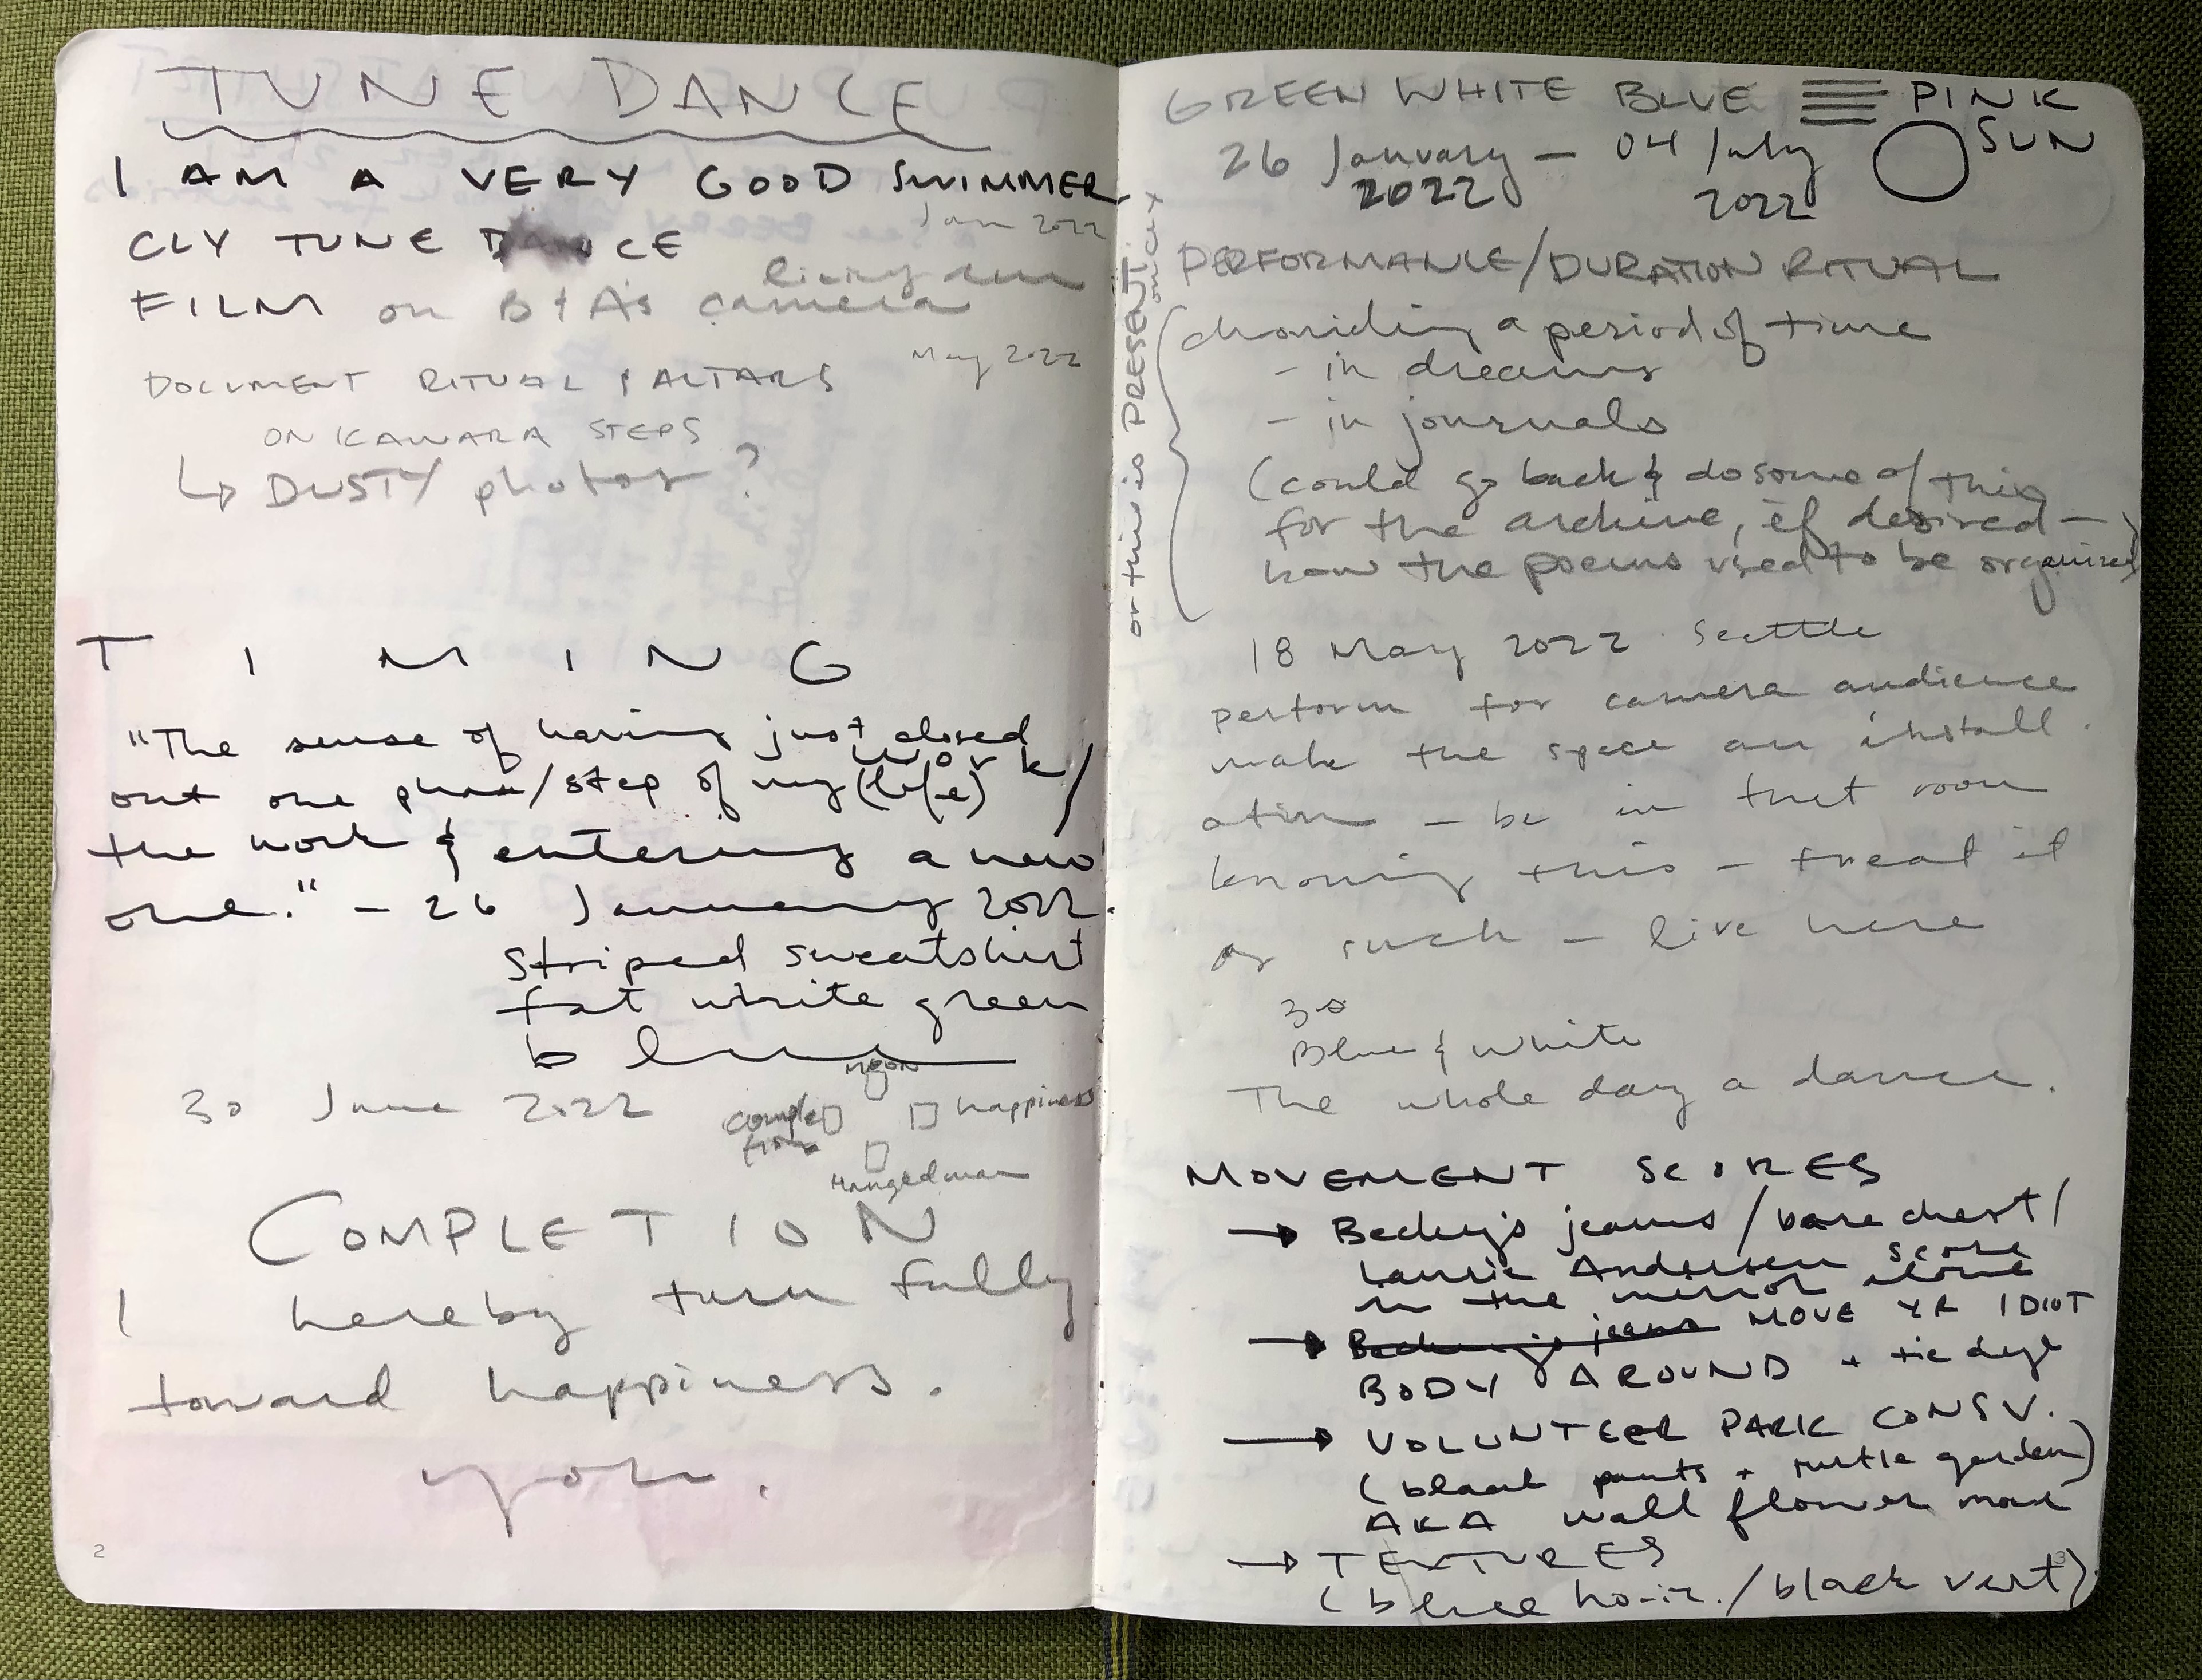 TUNE DANCE
I AM A VERY GOOD SWIMMER
Jan 2022
CLY TUNE DANCE
living rm
FILM on B & A's camera
May 2022
DOCUMENT RITUAL & ALTARS
ON KAWARA STEPS
↳ DUSTY photos?
TIMING
"The sense of having just closed
work/
out one phase/step of my (life)
the work & entering a new
one." – 26 January 2022.
striped sweatshirt
fat white green
blue
moon
30 June 2022
comple
tion
happiness
Hangedman
COMPLETION
I hereby turn fully
toward happiness.
you.
2
GREEN WHITE BLUE PINK
SUN
26 January – 04 July
2022 2022
PERFORMANCE/DURATION RITUAL
or this is PRESENT
a period of time
- in dreams
- in journals
(could go back & do some of this
for the archive, if desired –
how the poems used to be organized)
18 May 2022 Seattle
perform for camera audience
make the space an install
ation – be in that room
knowing this – treat it
as such – live here
30
Blue & white
The whole day a dance.
MOVEMENT SCORES
→ Becky's jeans / bare chest /
Laurie Andersen score
in the mirror alone
→ Becky's jeans MOVE YR IDIOT
BODY AROUND + tie dye
→ VOLUNTEER PARK CONSV.
(black pants + turtle garden)
AKA wall flower move
→ TEXTURES
(blue hair / black vest)
3